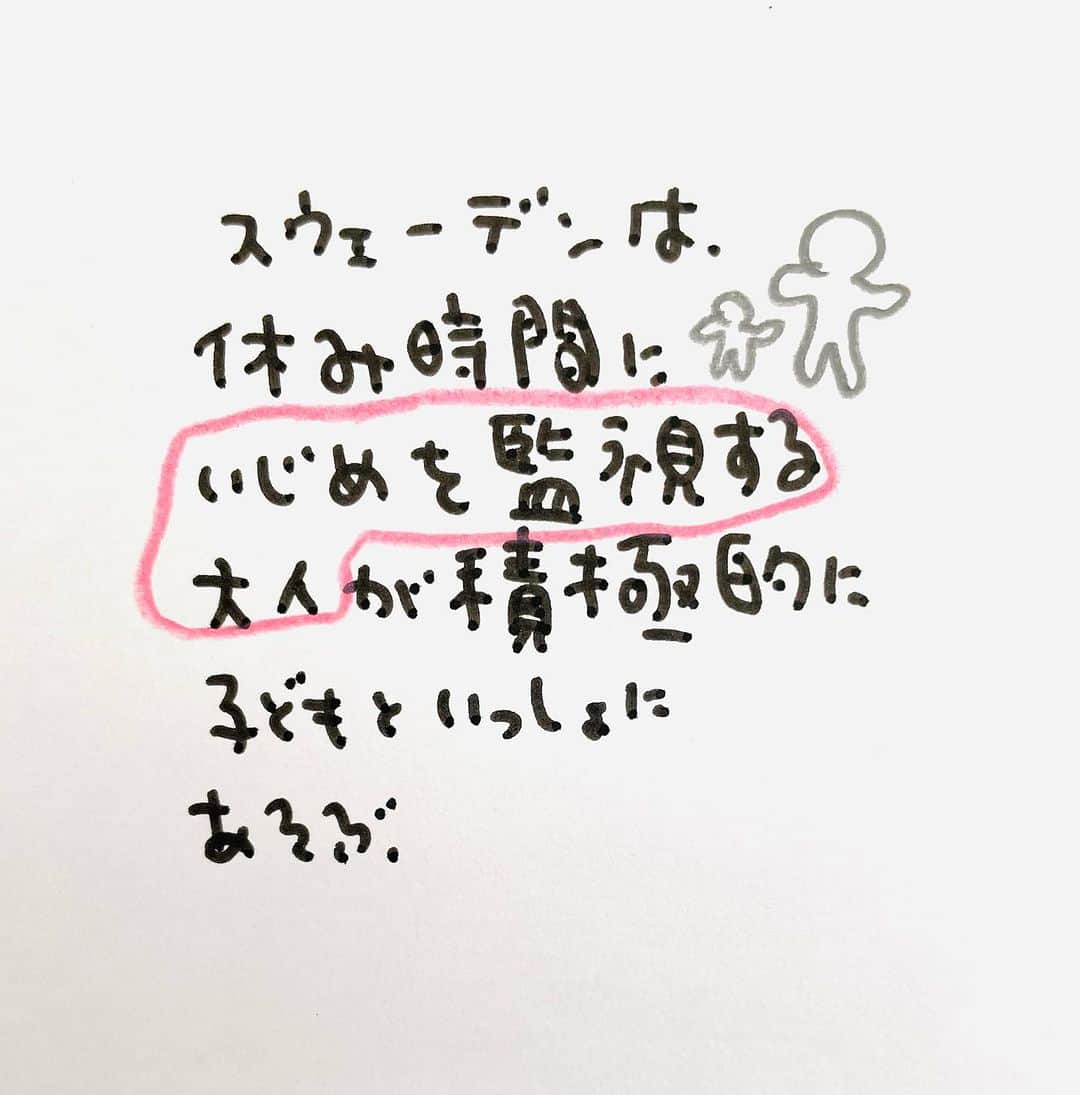 スウェーデンは、
休み時間に
いじめを監視する
大人が積極的に
子どもといっしょに
あそぶ